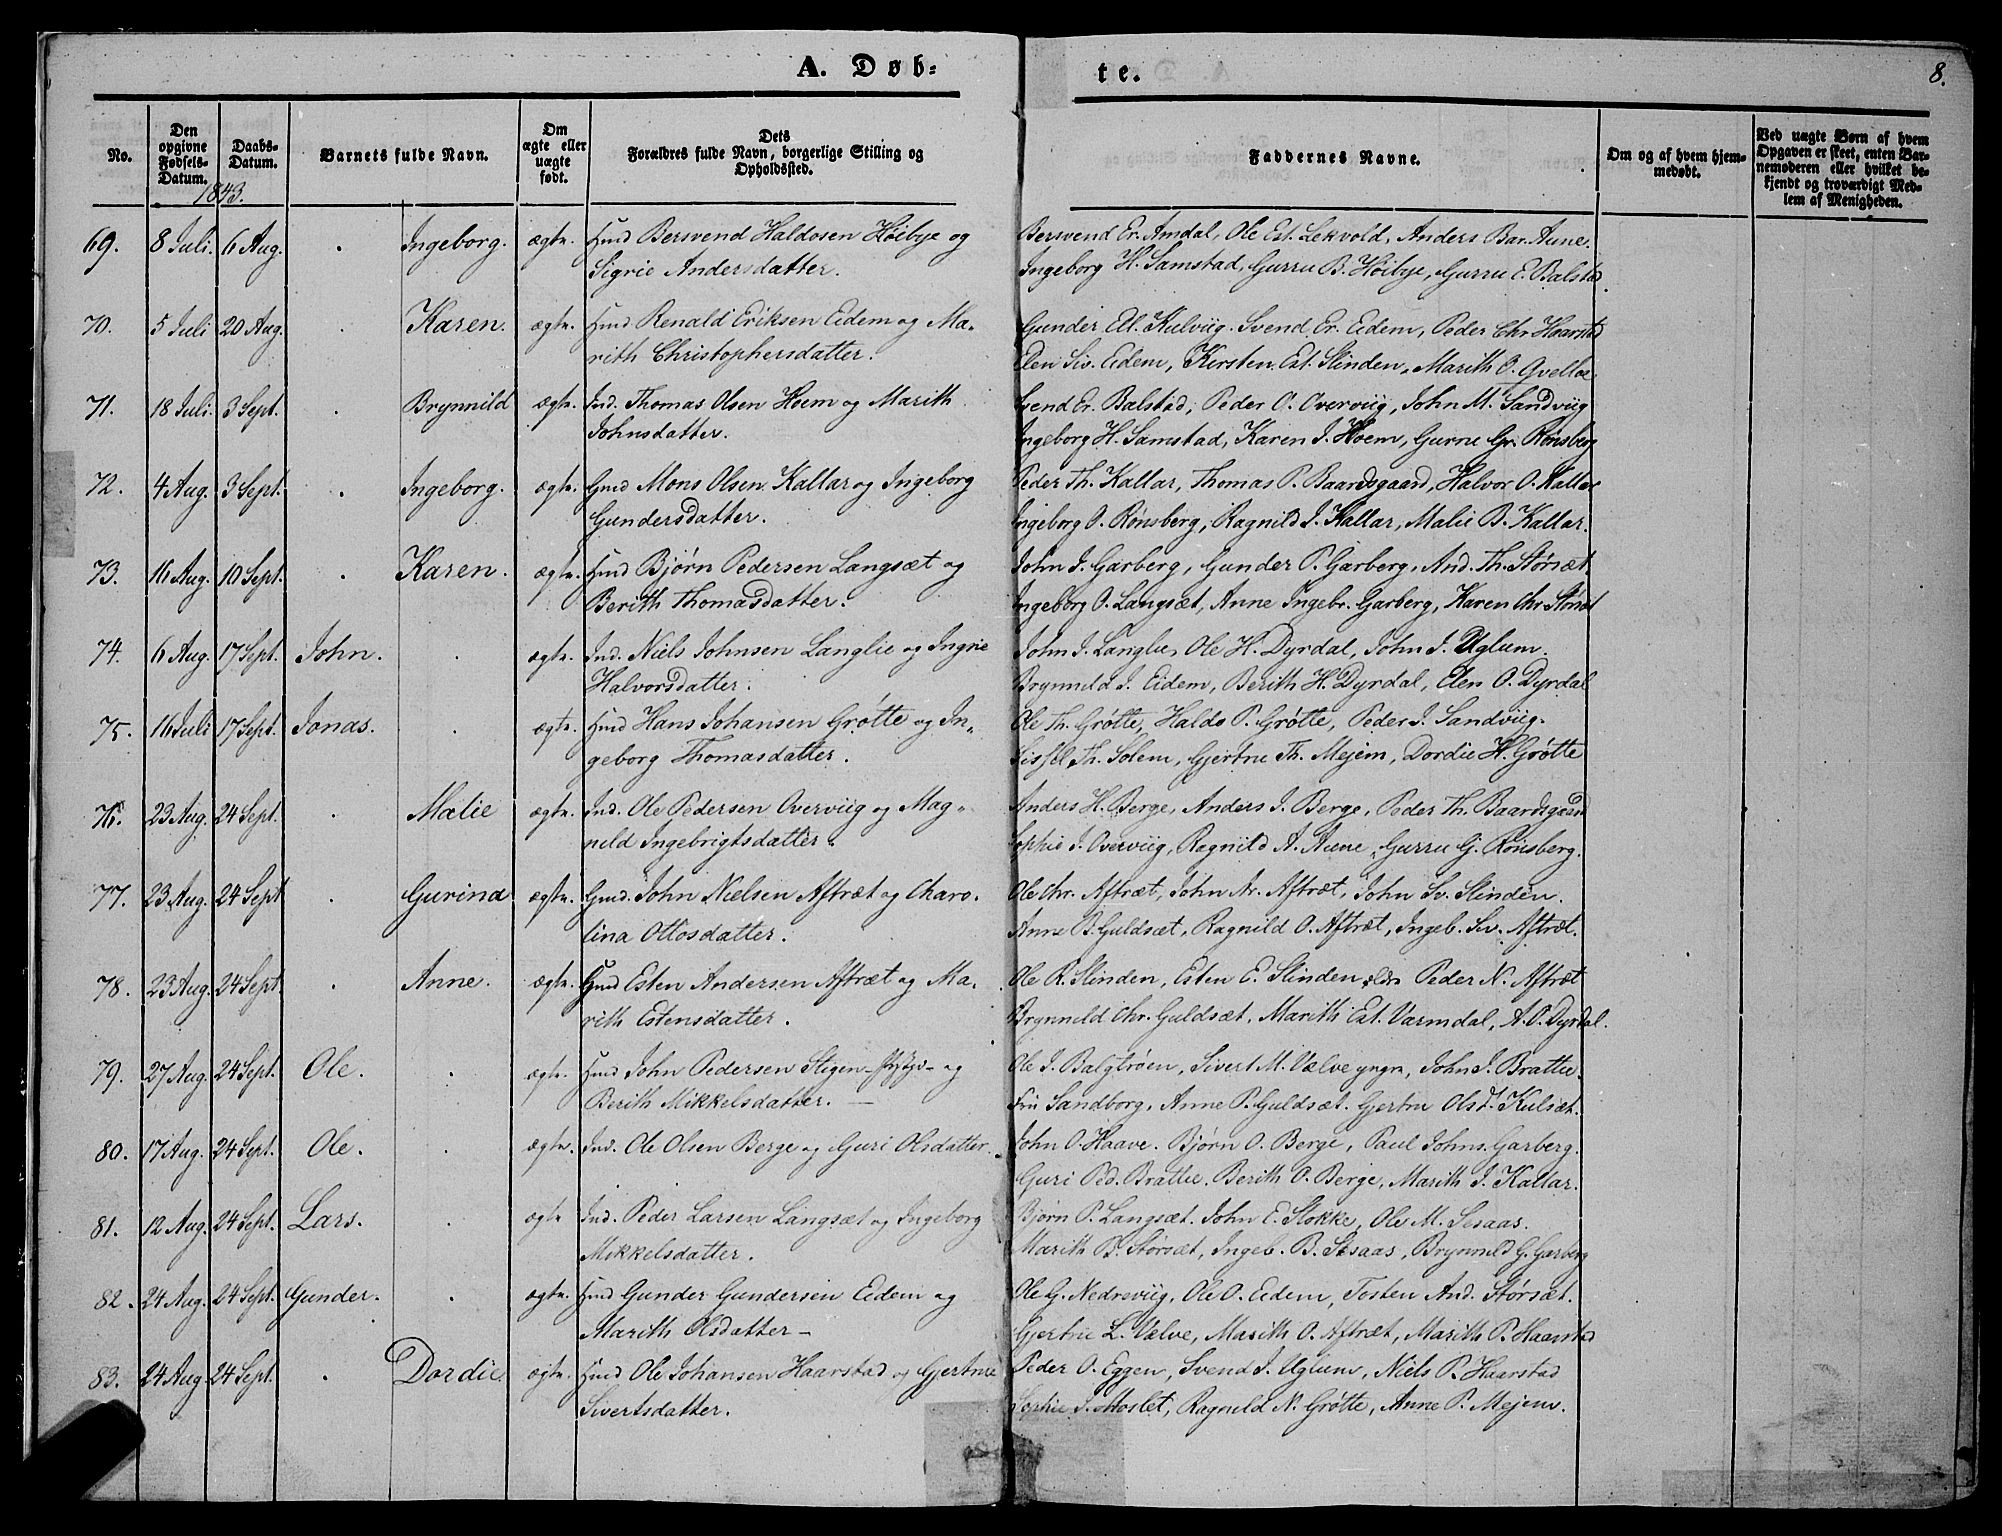 A. Døb-te.
8.
No.
Den opgivne Fødsels-Datum.
Daabs-Datum.
Barnets fulde Navn.
Om ægte eller uægte født.
Dets Forældres fulde Navn, borgerlige Stilling og Opholdssted.
Faddernes Navne.
Om og af hvem hjem-medøbt.
Ved uægte Børn af hvem Opgaven er skeet, enten Bar-nemoderen eller hvilket be-kjendt og troværdigt Med-lem af Menigheden.
1843.
69. 8 Juli. 6 Aug. Ingeborg. ægte. Hmd Bersvend Haldosen Höibye og Bersvend Er. Amdal, Ole Est. Lekvold, Anders Bar. Aune.
Sigrie Andersdatter. Ingeborg H. Samstad, Gurru B. Höibye, Gurru E. Balstad.
70. 5 Juli 20 Aug. Karen. ægte. Hmd Renald Eriksen Eidem og Ma- Gunder El. Kulviig. Svend Er. Eidem, Peder Chr Haarstad
rith Christophersdatter. Elen Siv. Eidem, Kirsten Est. Slinden, Marith O. Qvelloe
71. 18 Juli. 3 Sept. Brynnild ægte. Ind. Thomas Olsen Hoem og Marith Svend Er. Balstad, Peder O. Overviig, John M. Sandviig
Johnsdatter. Ingeborg H. Samstad, Karen J. Hoem, Gurne Gr. Rönsberg
72. 4 Aug. 3 Sept. Ingeborg. ægte. Gmd Mons Olsen Kallar og Ingeborg Peder Th. Kallar, Thomas P. Baardsgaard, Halvor O. Kallar
Gundersdatter. Ingeborg O. Rönsberg, Ragnild J. Kallar, Malie B. Kallar.
73. 16 Aug. 10 Sept. Karen. ægte. Hmd Björn Pedersen Langsæt og John J. Garberg, Gunder P. Garberg, And. Th. Störsæt.
Berith Thomasdatter. Ingeborg O. Langsæt, Anne Ingebr. Garberg, Karen Chr Störsæt
74. 6 Aug. 17 Sept. John. ægte. Ind. Niels Johnsen Langlie og Ingrie John J. Langlie, Ole H. Dyrdal, John J. Uglum.
Halvorsdatter. Brynnild J. Eidem, Berith H. Dyrdal, Elen O. Dyrdal
75. 16 Juli 17 Sept. Jonas. ægte. Hmd Hans Johansen Grötte og In- Ole Th. Grötte, Haldo P. Grötte, Peder J. Sandviig.
geborg Thomasdatter. Sissel Th. Solem, Gjertrue Th. Mejem, Dordie H. Grötte
76. 23 Aug. 24 Sept. Malie ægte. Ind. Ole Pedersen Overviig og Mag- Anders H. Berge, Anders J. Berge, Peder Th. Baardsgaard
nild Ingebrigtsdatter. Sophie J. Overviig, Ragnild A. Aune, Gurru G. Rönsberg.
77. 23 Aug. 24 Sept Gurina ægte. Gmd. John Nielsen Aftræt og Charo- Ole Chr. Aftræt, John Ar. Aftræt, John Sv. Slinden.
lina Ottosdatter. Anne B. Guldsæt, Ragnild O. Aftræt, Ingeb. Siv. Aftræt.
78. 23 Aug. 24 Sept Anne. ægte. Hmd Esten Andersen Aftræt og Ma- Ole R. Slinden, Esten E. Slinden ældre Peder N. Aftræt
rith Estensdatter. Brynnild Chr. Guldsæt, Marith Est. Varmdal, A. O. Dyrdal.
79. 27 Aug. 24 Sept. Ole. ægte. Hmd John Pedersen Stigen og Ole J. Balgtröen, Sivert M. Vælve yngre, John J. Brattie.
Berith Mikkelsdatter. Fru Sandborg, Anne P. Guldsæt. Gjertru Olsd. Kulsæt.
80. 17 Aug. 24 Sept. Ole. ægte. Ind. Ole Olsen Berge og Guri Olsdatter. John O. Haave. Björn O. Berge, Paul Johns. Garberg.
Guri Ped. Brattie. Berith O. Berge, Marith J. Kallar.
81. 12 Aug. 24 Sept. Lars. ægte Ind. Peder Larsen Langsæt og Ingeborg Björn P. Langsæt. John E. Stokke, Ole M. Sesaas.
Mikkelsdatter. Marith B. Störsæt, Ingeb. B. Sesaas, Brynnild G. Garberg
82. 24 Aug. 24 Sept. Gunder. ægte. Hmd Gunder Gundersen Eidem og Ole G. Nedreviig, Ole O. Eidem, Tosten And. Störsæt.
Marith Olsdatter Gjertrue L. Vælve, Marith O. Aftræt, Marith P. Haarstad
83. 24 Aug. 24 Sept. Dordie. ægte. Hmd Ole Johansen Haarstad og Gjertrue Peder O. Eggen, Svend J. Uglum, Niels P. Haarstad
Sivertsdatter. Sophie J. Moslet, Ragnild N. Grötte, Anne P. Mejem.